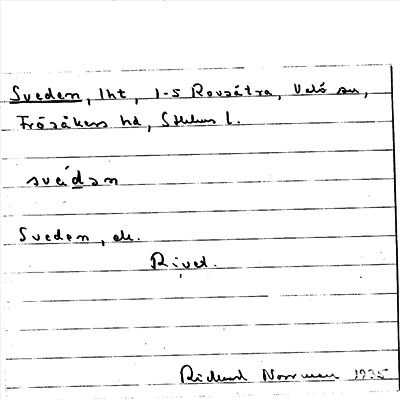 Sveden, lht, 1-5 Rovsätra, Valö sn,
Frösåkers hd, Sthlms l.
sveˊdən
Sveden, ek.
Rivet.
Richard Norrman 1935